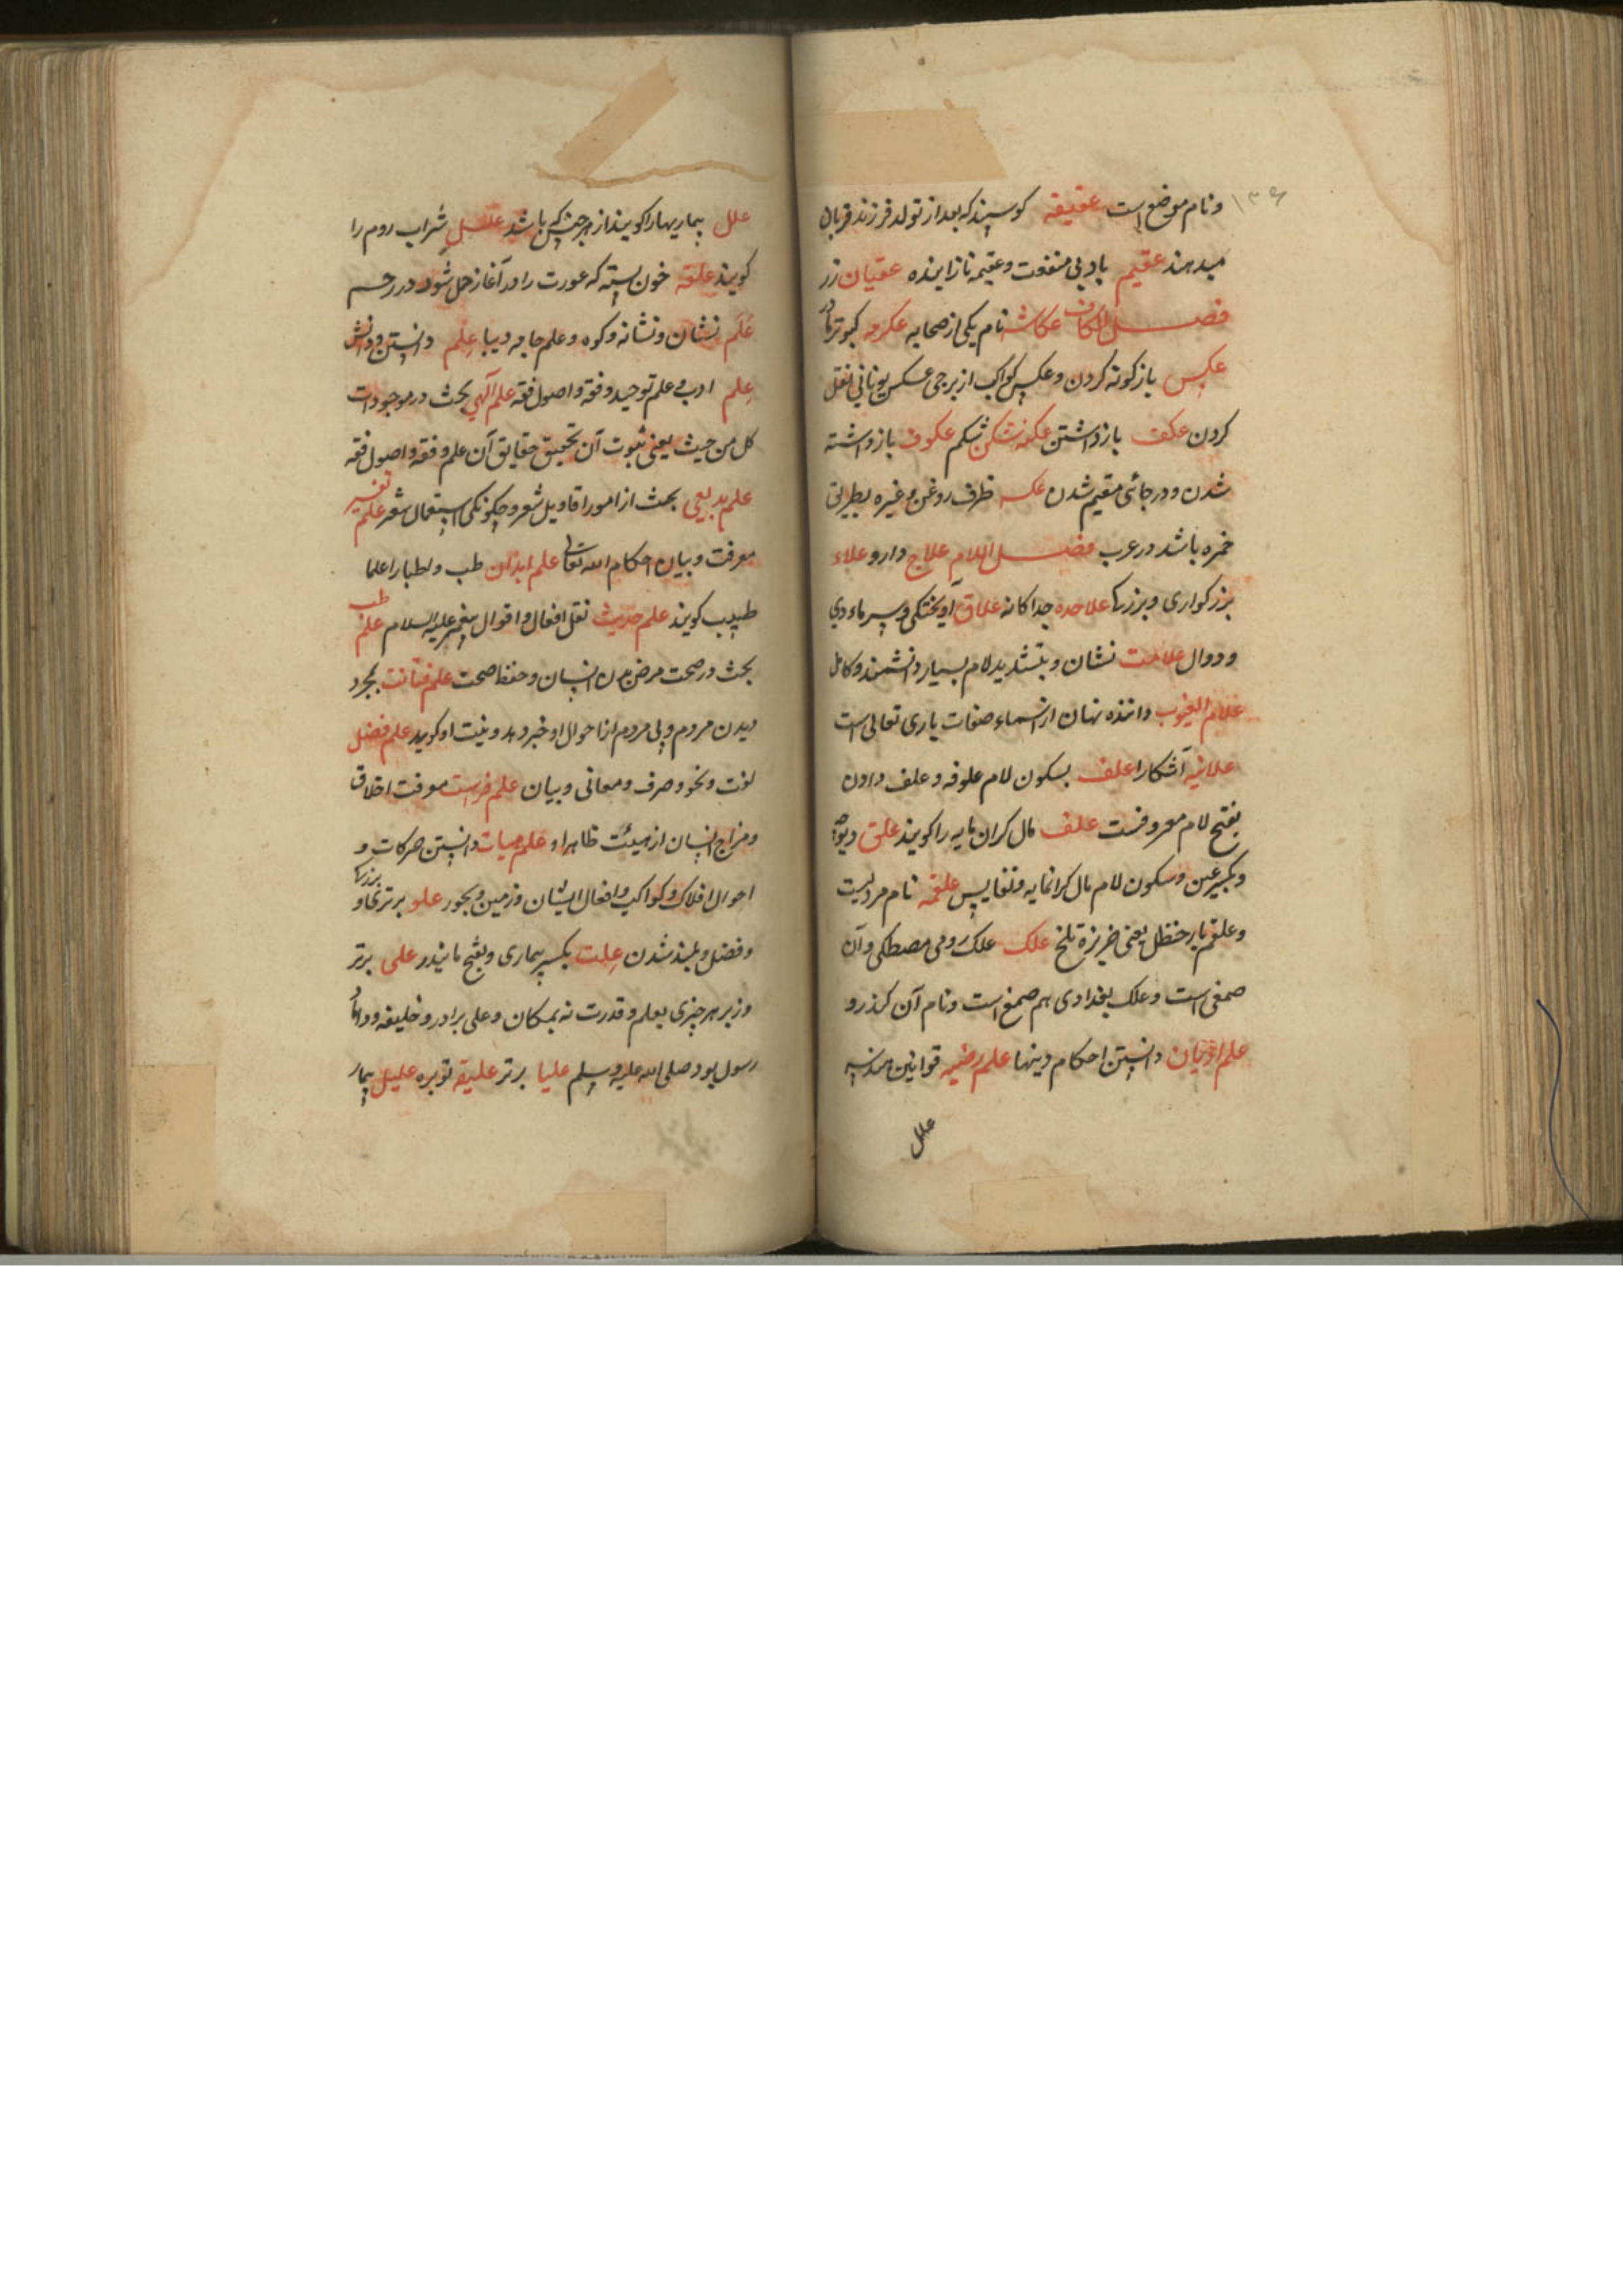 ۱۳۶
ونام موضع است عقیقه کوسپند که بعد از تولد فرزند قربان
میدهند عقیم باد بی منفعت و عقیمه نازاینده عقیان زر
فصل الکاف عکاشه نام یکی از صحابه عکرمه کبوتر ماده
عکس بازکونه کردن و عکس کواکب از برجی عکس یونانی نقل
کردن عکف بازداشتن عکنه شکن شکم عکوف بازداشته
شدن و در جائی مقیم شدن عکه ظرف روغن و غیره بطریق
خمره باشد در عرب فصل اللام علاج دارو علاء
بزرکواری و بزرکها علاحده جداکانه علاق آویختکی و
ودوال علامت نشان و بتشدید لام بسیار دانشمند و کامل
علام الغیوب داننده نهان از اسماء صفات باری تعالی است
علانیه آشکارا علف بسکون لام علوفه و علف دادن
بفتح لام معروفست علف مال کران مایه را کویند علق دیوچه
وبکسر عین و سکون لام مال کرانمایه و نفایس علقمه نام مردیست
وعلقم بار حنظل یعنی خربزه تلخ علک علک رومی مصطکی و آن
صمغی است و علک بغدادی هم صمغ است و نام آن کندرو
علم ادیان دانستن احکام دینها علم قوانین هندسه
علل
علل بیماریها را کویند از هر جنس که باشد شراب روم را
کویند علقه خون بسته که عورت را در آغاز حمل شود در رحم
علم نشان و نشانه و کوه و علم جامه دیبا علم دانستن و دانش
علم ادب علم توحید و فقه و اصول فقه علم آلهی بحث در موجودات
کل من حیث یعنی ثبوت آن تحقیق حقایق آن علم و فقه و اصول فقه
علم بدیعی بحث از امور اقاویل شعر و چکونکی استعمال شعر علم تفسیر
معرفت و بیان احکام الله تعالی علم ابدان طب و اطبا را علما
طبیب کویند علم حدیث نقل افعال و اقوال پیغمبر علیه السلام علم طب
بحث در صحت مرض بدن انسان و حفظ صحت علم بمجرد
دیدن مردم و پی مردم از احوال او خبر دهد و نیت او کوید علم فضل
لغت و نحو و صرف و معانی و بیان علم فراست معرفت اخلاق
ومزاج انسان از هیئت ظاهر او علم هیات دانستن حرکات و
احوال افلاک و کواکب و افعال ایشان و زمین و بحور علو برتری و بزرکی
وفضل و بلند شدن علت بکسر بیماری و بفتح مانیدر علی برتر
وزبر هر چیزی بعلم و قدرت نه بمکان و علی برادر و خلیفه و داماد
رسول بود صلی الله علیه وسلم علیا برتر علیقه توبره علیل بیمار